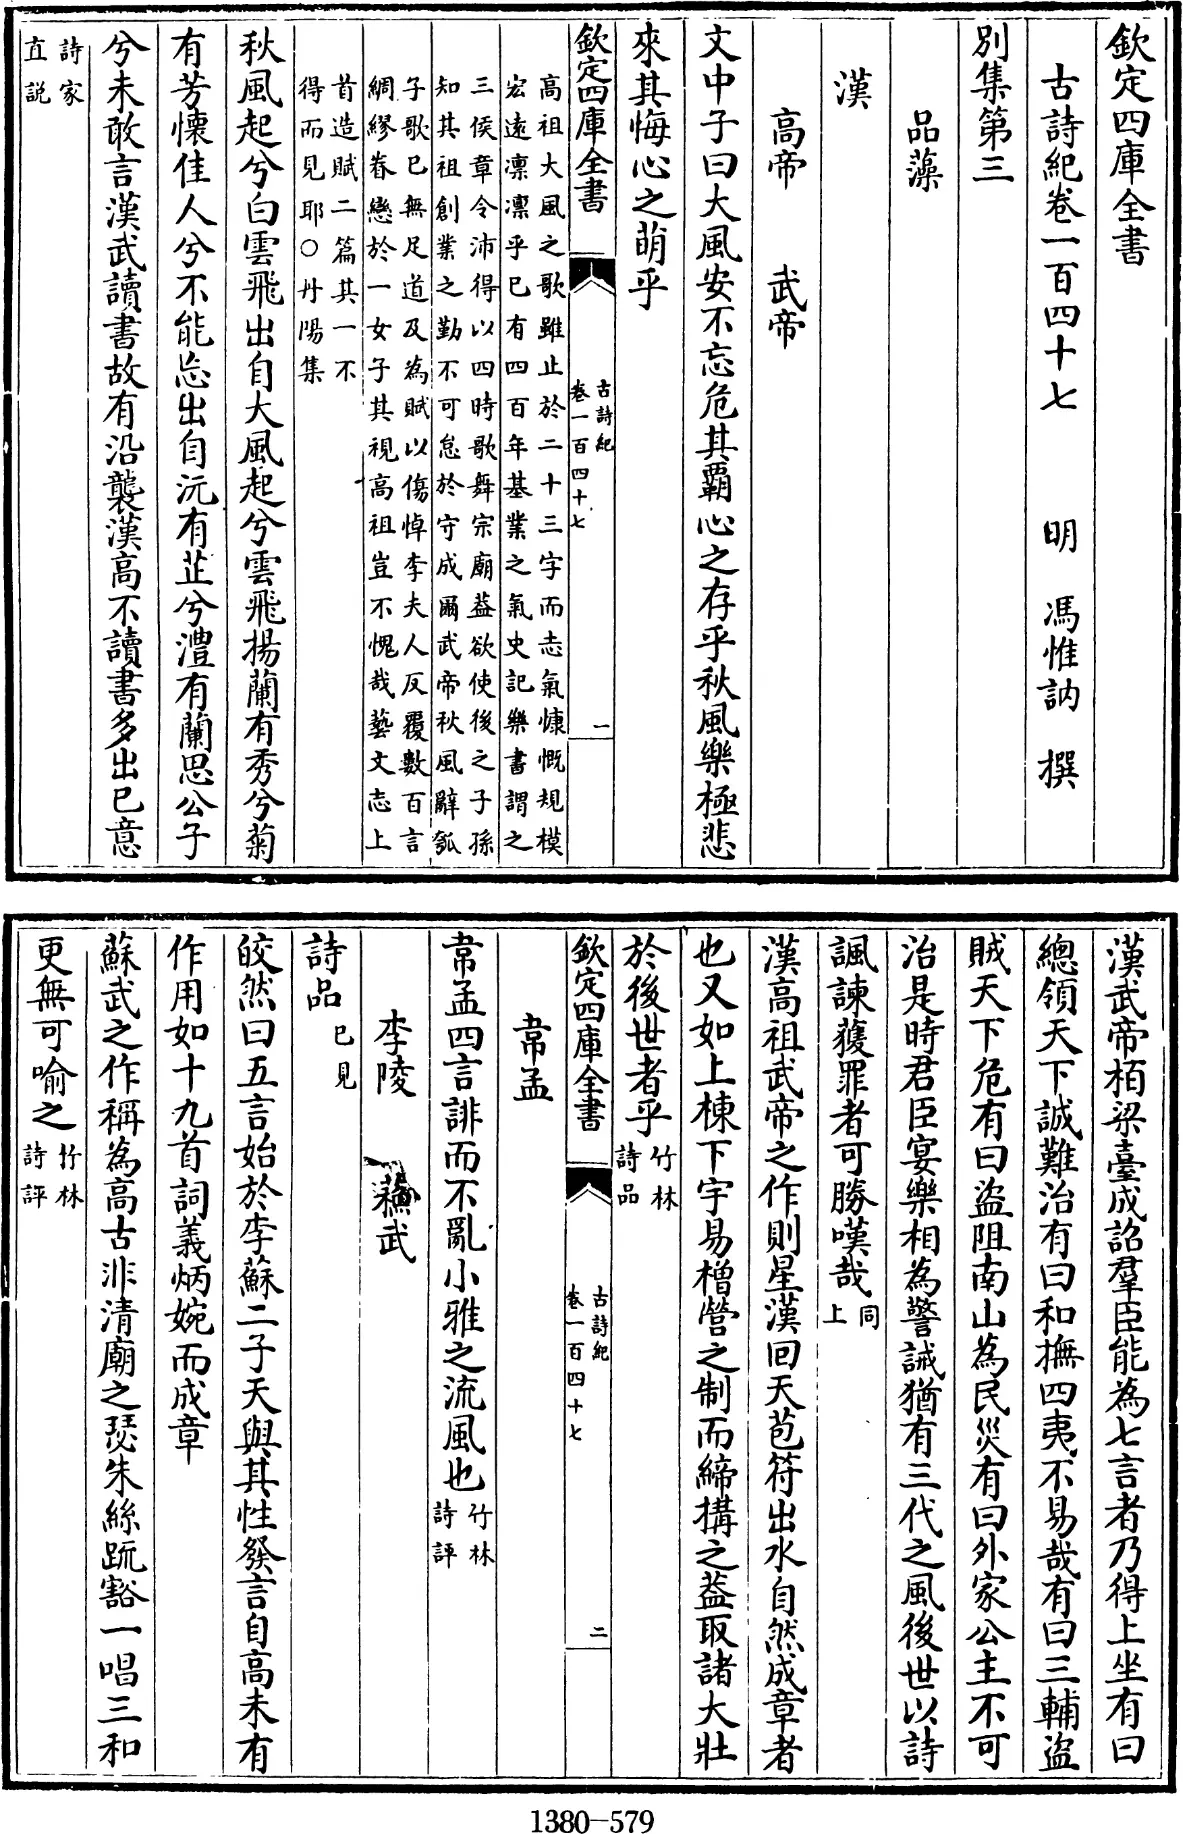 欽定四庫全書
古詩紀卷一百四十七　明　馮惟訥　撰
別集第三
品藻
漢
高帝　武帝
文中子曰大風安不忘危其覇心之存乎秋風樂極悲
來其悔心之萌乎
欽定四庫全書
古詩紀
卷一百四十七
一
高祖大風之歌雖止於二十三字而志氣慷慨規模
宏逺凛凛乎已有四百年基業之氣史記樂書謂之
三侯章令沛得以四時歌舞宗廟葢欲使後之子孫
知其祖創業之勤不可怠於守成爾武帝秋風辭瓠
子歌已無足道及為賦以傷悼李夫人反覆數百言
綢繆眷戀於一女子其視高祖豈不愧哉藝文志上
首造賦二篇其一不
得而見耶○丹陽集
秋風起兮白雲飛出自大風起兮雲飛揚蘭有秀兮菊
有芳懷佳人兮不能忘出自沅有芷兮澧有蘭思公子
兮未敢言漢武讀書故有沿襲漢高不讀書多出已意
詩家
直説
漢武帝栢梁臺成詔羣臣能為七言者乃得上坐有曰
總領天下誠難治有曰和撫四夷不易哉有曰三輔盜
賊天下危有曰盜阻南山為民災有曰外家公主不可
治是時君臣宴樂相為警誡猶有三代之風後世以詩
諷諫獲罪者可勝嘆哉同
上
漢高祖武帝之作則星漢回天苞符出水自然成章者
也又如上棟下宇易橧營之制而締搆之葢取諸大壯
於後世者乎竹林
詩品
欽定四庫全書
古詩紀
卷一百四十七
二
韋孟
韋孟四言誹而不亂小雅之流風也竹林
詩評
李陵　蘇武
詩品已見
皎然曰五言始於李蘇二子天與其性發言自高未有
作用如十九首詞義炳婉而成章
蘇武之作稱為高古非清廟之瑟朱絲疏豁一唱三和
更無可喻之竹林
詩評
1380—579